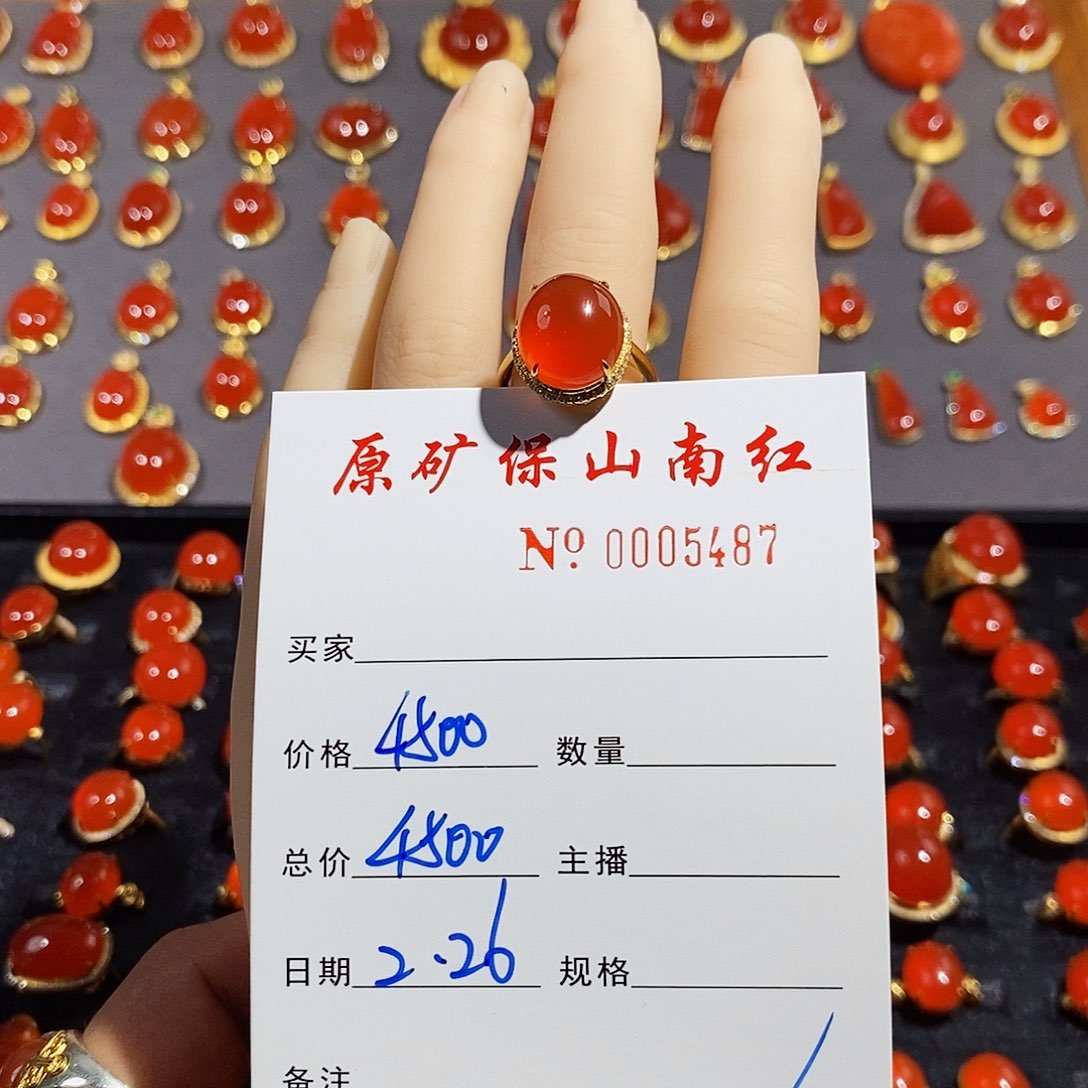 原矿保山南红
Nº 0005487
买家
价格 4500 数量
总价 4500 主播
日期 2.26 规格
备注